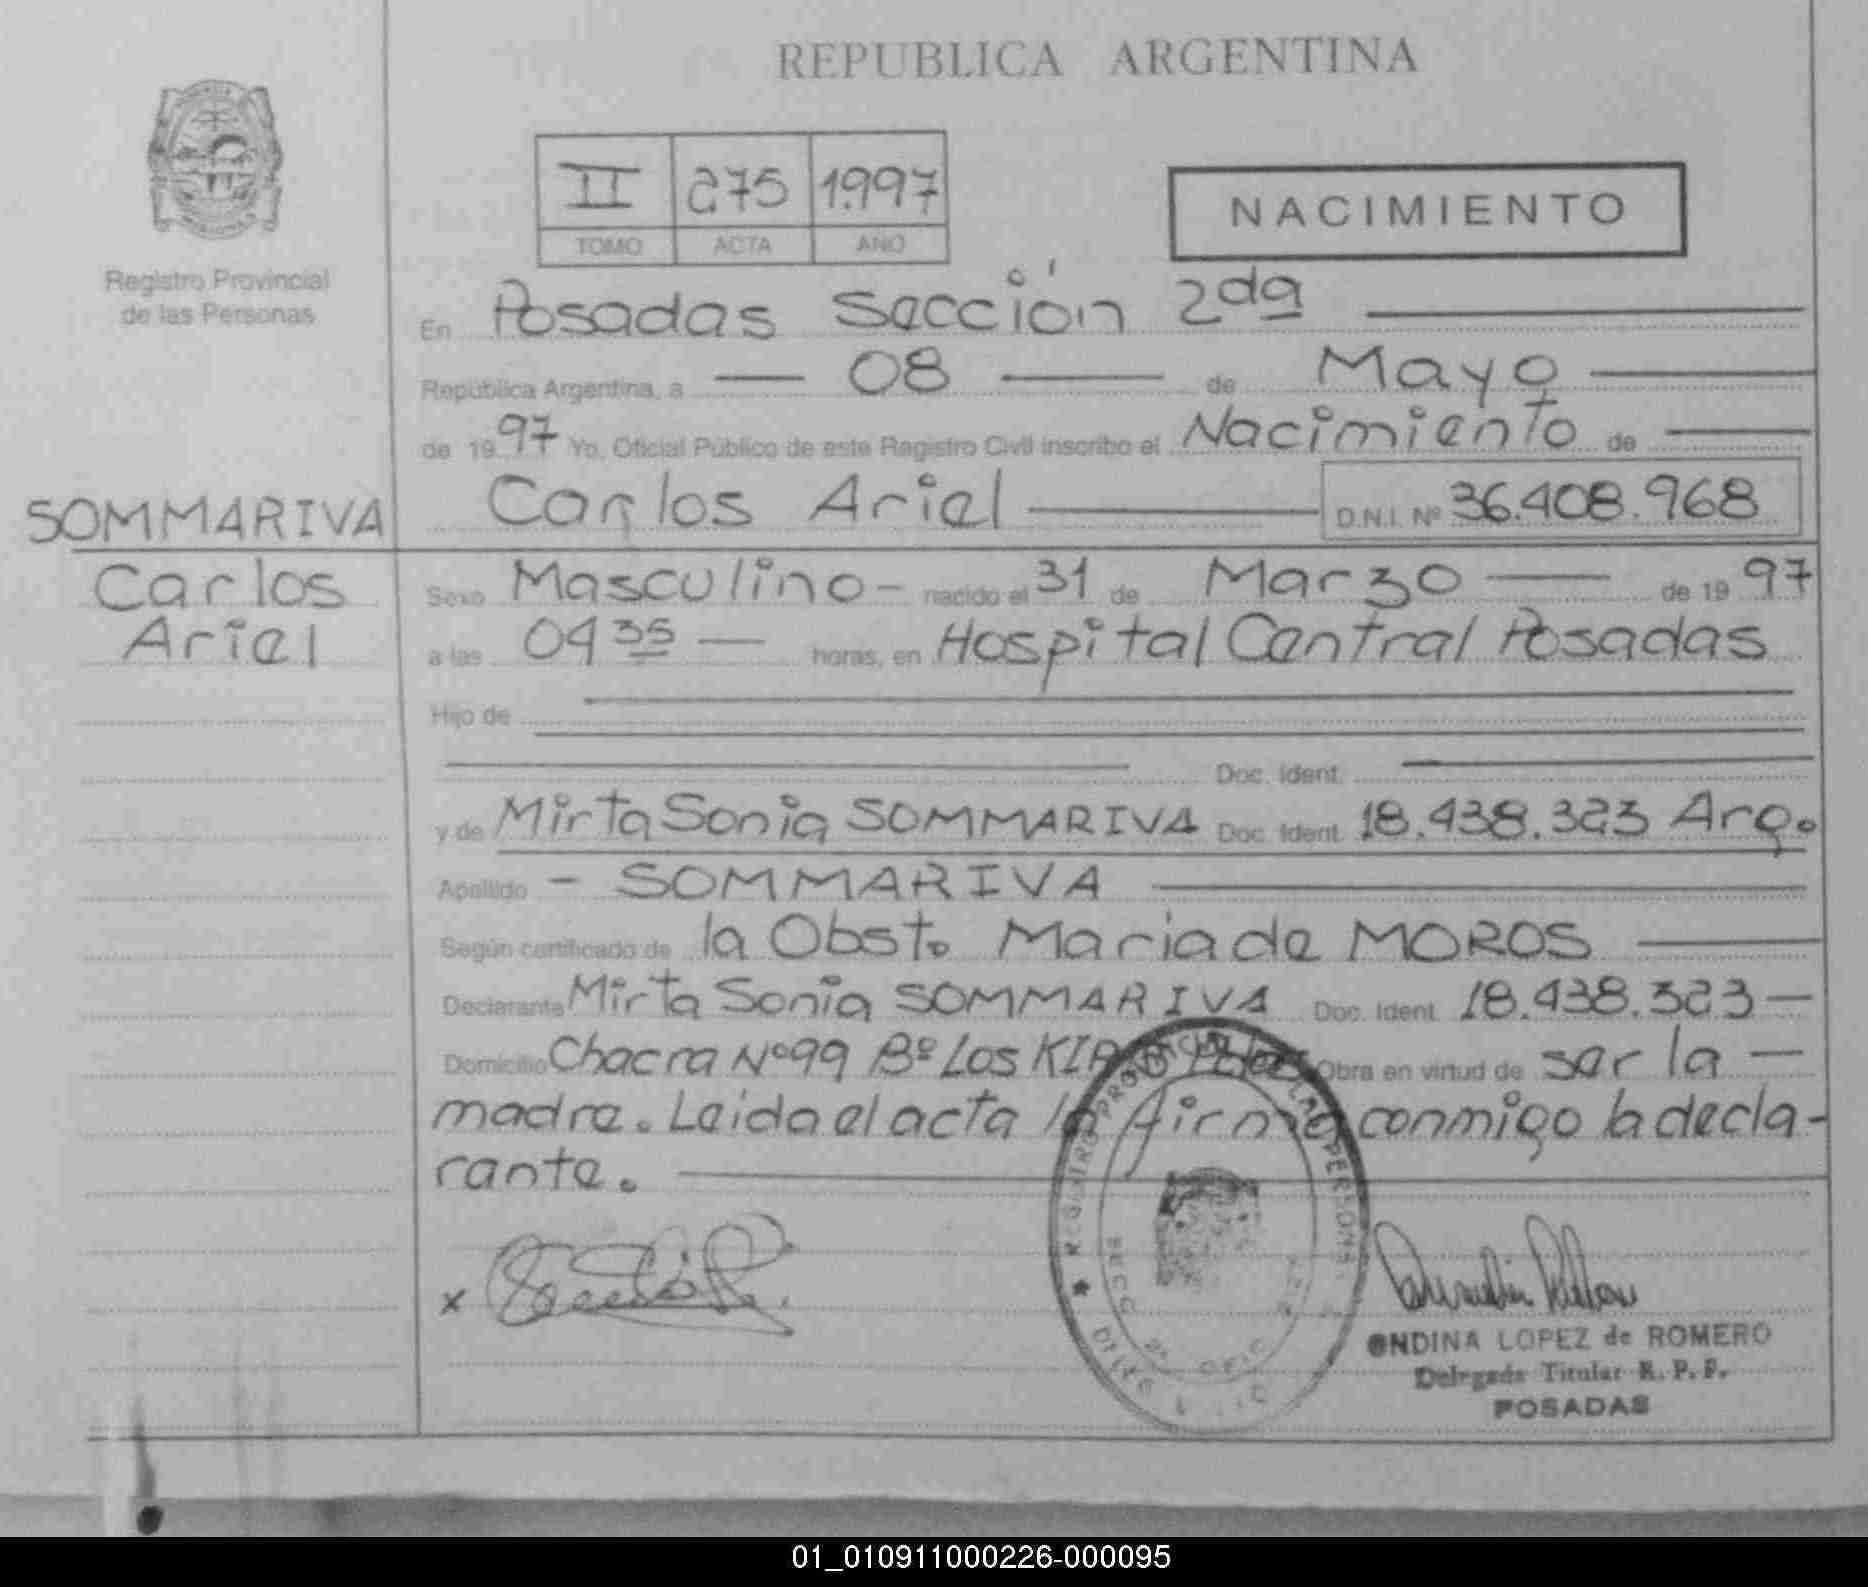 REPUBLICA ARGENTINA
II 275 1997
TOMO ACTA AÑO
NACIMIENTO
Registro Provincial
de las Personas
En Posadas Sección 2da
República Argentina, a 08 de Mayo
de 1997 Yo, Oficial Público de este Registro Civil inscribo el Nacimiento de
SOMMARIVA
Carlos Ariel D.N.I. Nº 36.408.968
Carlos
Ariel
Sexo Masculino - nacido el 31 de Marzo de 1997
a las 0435 horas, en Hospital Central Posadas
Hijo de
Doc. Ident.
y de Mirta Sonia SOMMARIVA Doc. Ident. 18.438.323 Arg.
Apellido - SOMMARIVA
Según certificado de la Obst. Maria de MOROS
Declarante Mirta Sonia SOMMARIVA Doc. Ident. 18.438.323 -
Domicilio Chacra Nº 99 Bº Los Obra en virtud de ser la -
madre. Leida el acta la firma conmigo la decla-
rante.
x
REGISTRO PROVINCIAL DE LAS PERSONAS
SECC 2ª OFIC
ONDINA LOPEZ de ROMERO
Delegada Titular R. P. P.
POSADAS
01_010911000226-000095